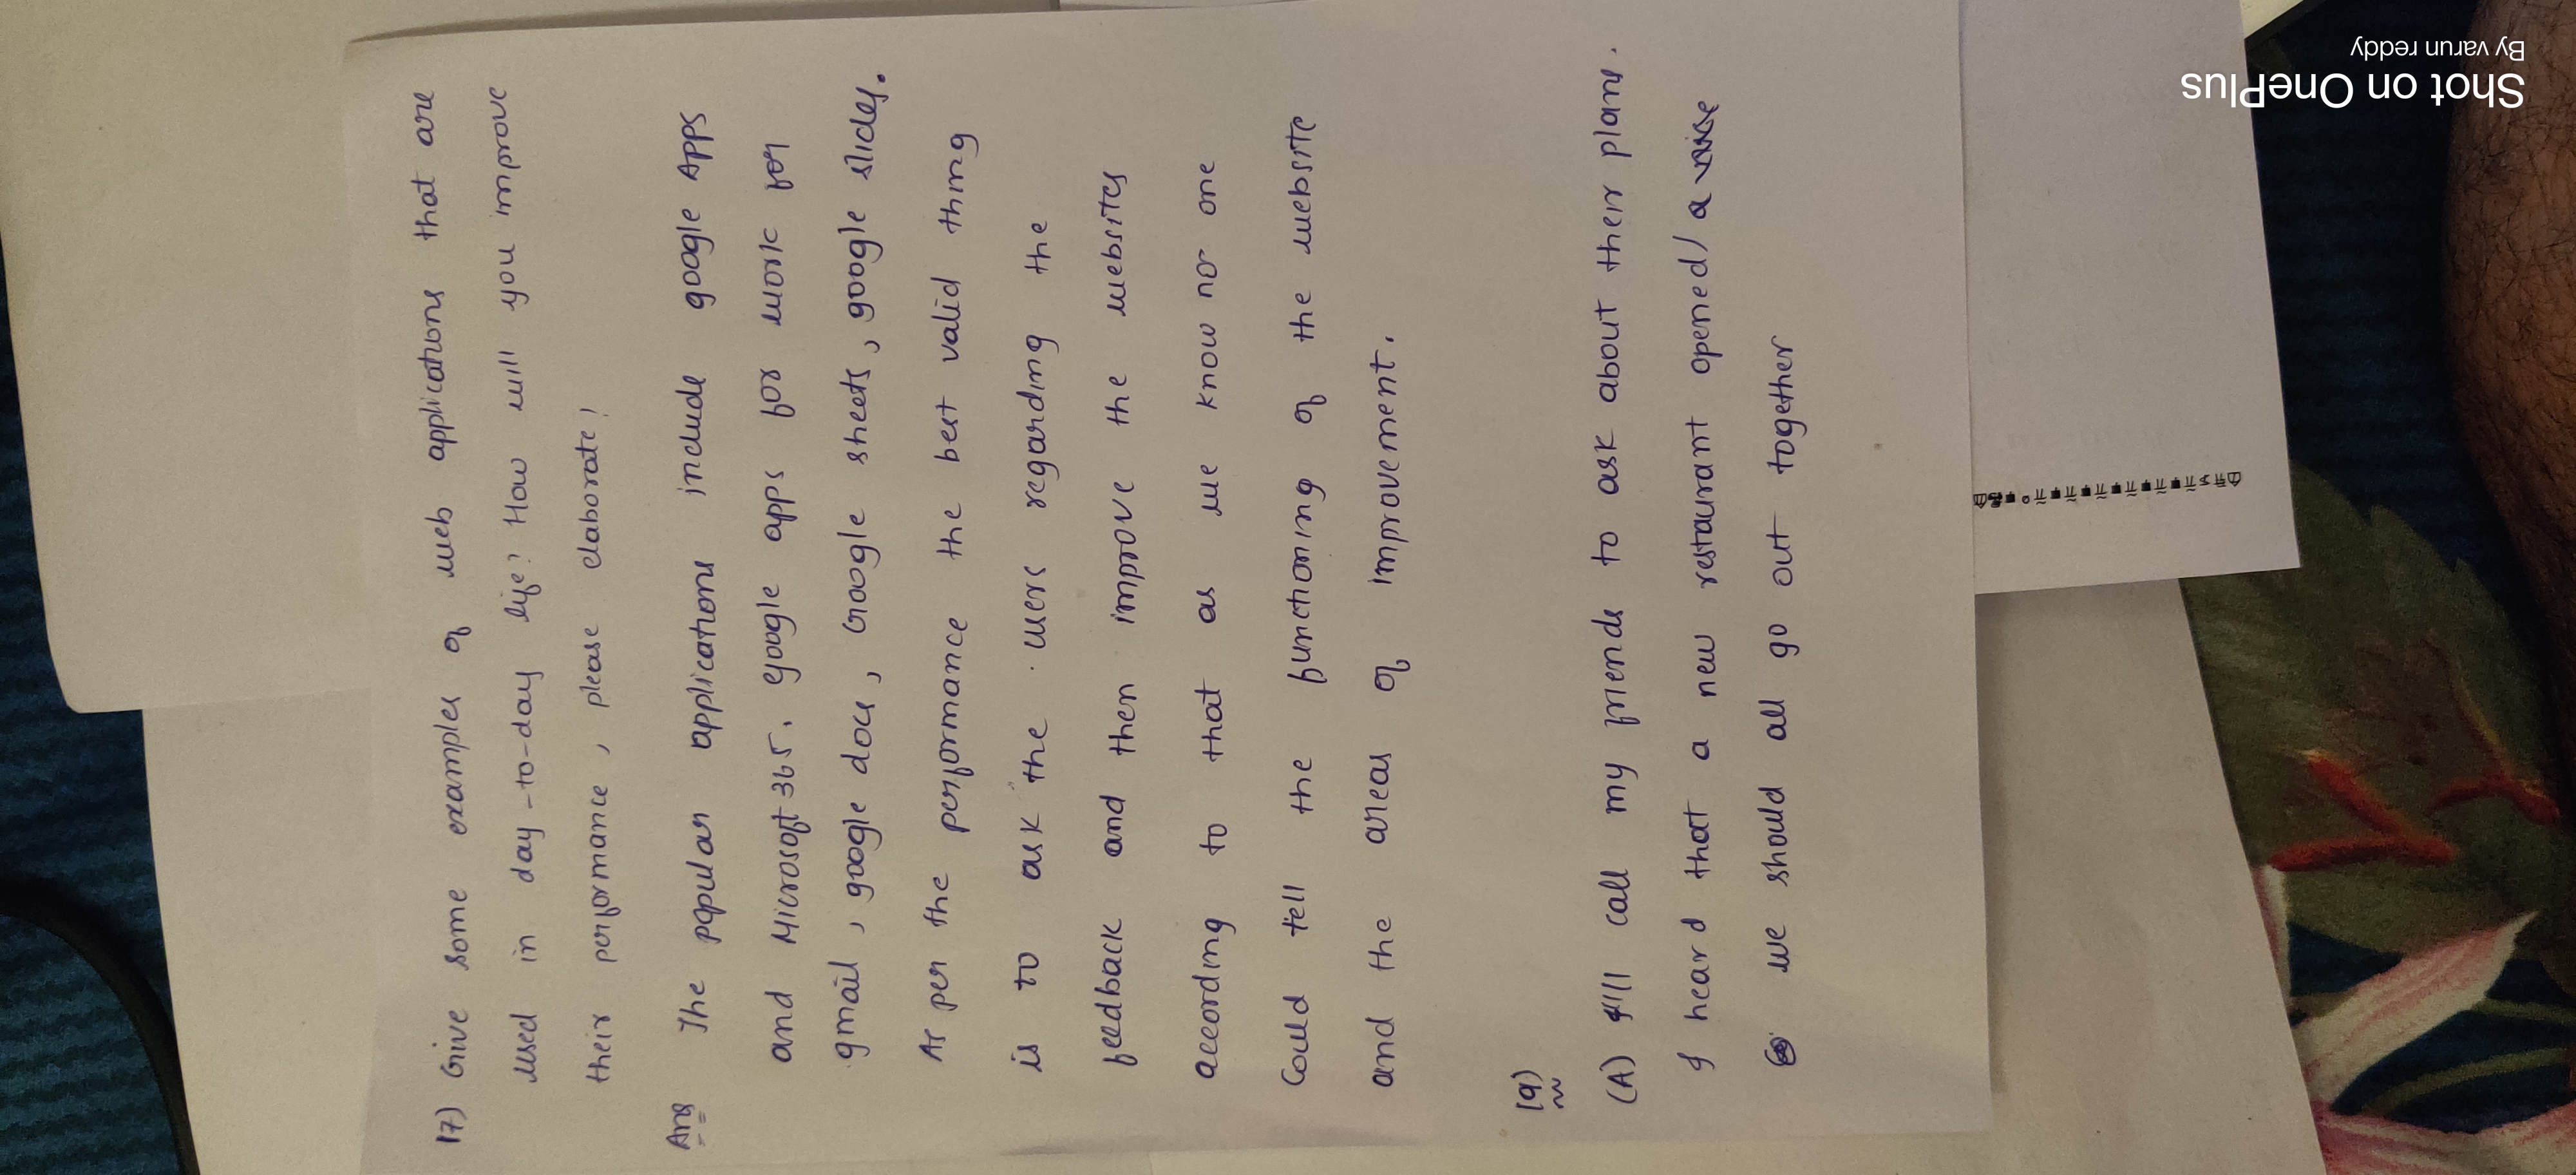 17) Give some examples of web applications that are
used in day-to-day life? How will you improve
their performance, please elaborate!
Ans The popular applications include google Apps
and Microsoft 365. google apps for work for
gmail, google docs, Google sheets, google slides.
As per the performance the best valid thing
is to ask the users regarding the
feedback and then improve the websites
according to that as we know no one
Could tell the functioning of the website
and the areas of improvement.
19)
(A) I'll call my friends to ask about their plans.
I heard that a new restaurant opened / a
we should all go out together
Shot on OnePlus
By varun reddy